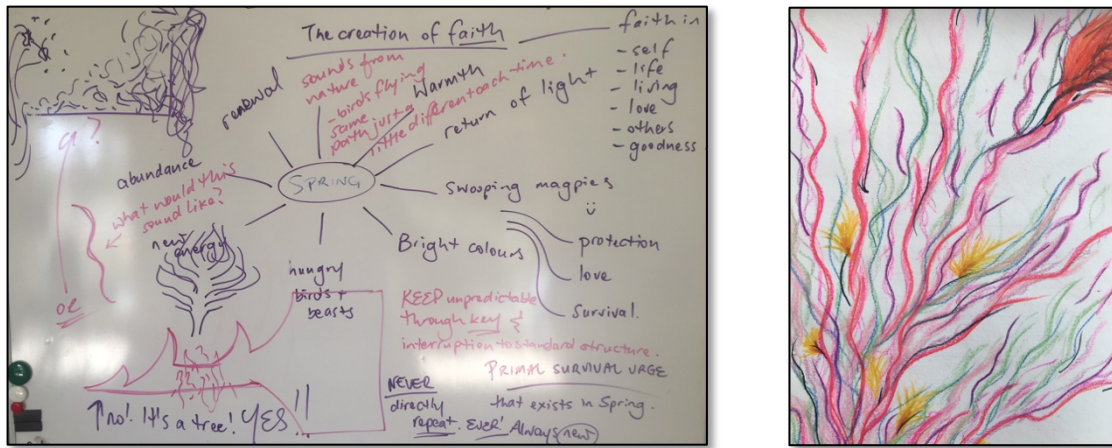 The creation of faith
faith in
- self
- life
- living
- love
- others
- goodness
renewal
sounds from
nature
- birds flying
same
path just a
little different each time.
Warmth
return of light
a?
abundance
SPRING
what would this
sound like?
swooping magpies
protection
love
survival.
new
energy
hungry
birds +
beasts
Bright colours
oe
KEEP unpredictable
through key &
interruption to standard structure.
PRIMAL SURVIVAL URGE
that exists in Spring.
NEVER
directly
repeat. EVER! Always new
↑ no! It's a tree! YES!!